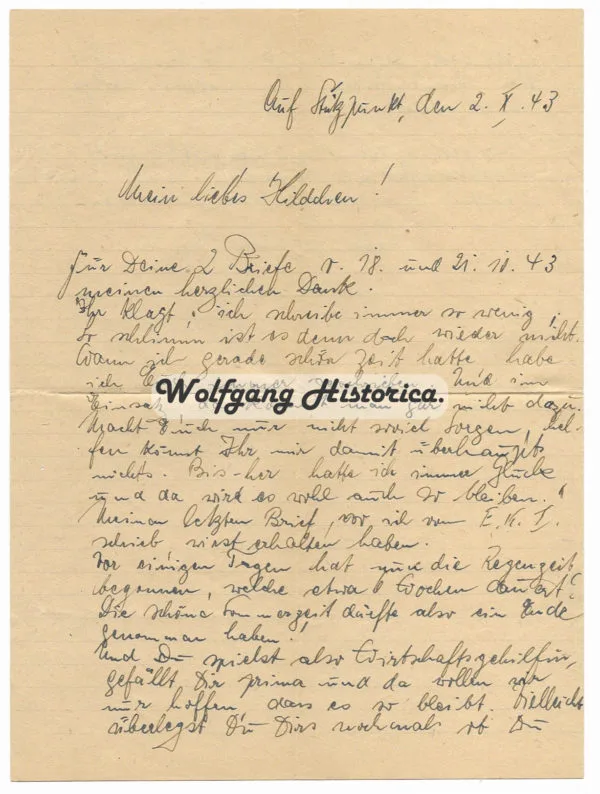 Auf Stützpunkt, den 2. X. 43
Mein liebes Hildchen!
Für Deine 2 Briefe v. 18. und 21. 10. 43
meinen herzlichen Dank.
Ihr klagt, ich schreibe immer so wenig,
So schlimm ist es denn doch wieder nicht.
Wann ich gerade schön Zeit hatte habe
ich Und im
Einsatz man gar nicht dazu.
Macht Euch nur nicht soviel Sorgen, hel-
fen könnt Ihr mir damit überhaupts
nichts. Bis-her hatte ich immer Glück
und da wird es woll auch so bleiben.
Meinen letzten Brief, wo ich vom E. K. I.
schrieb wirst erhalten haben.
Vor einigen Tagen hat nun die Regenzeit
begonnen, welche etwa Wochen dauert.
Die schöne Sommerzeit dürfte also ein Ende
genomman haben!
Und Du spielst also Wirtschaftsgehilfin,
gefällt Dir prima und da wollen wir
nur hoffen, dass es so bleibt. Vielleicht
überlegst Du Dirs nochmals ob Du
Wolfgang Historica.